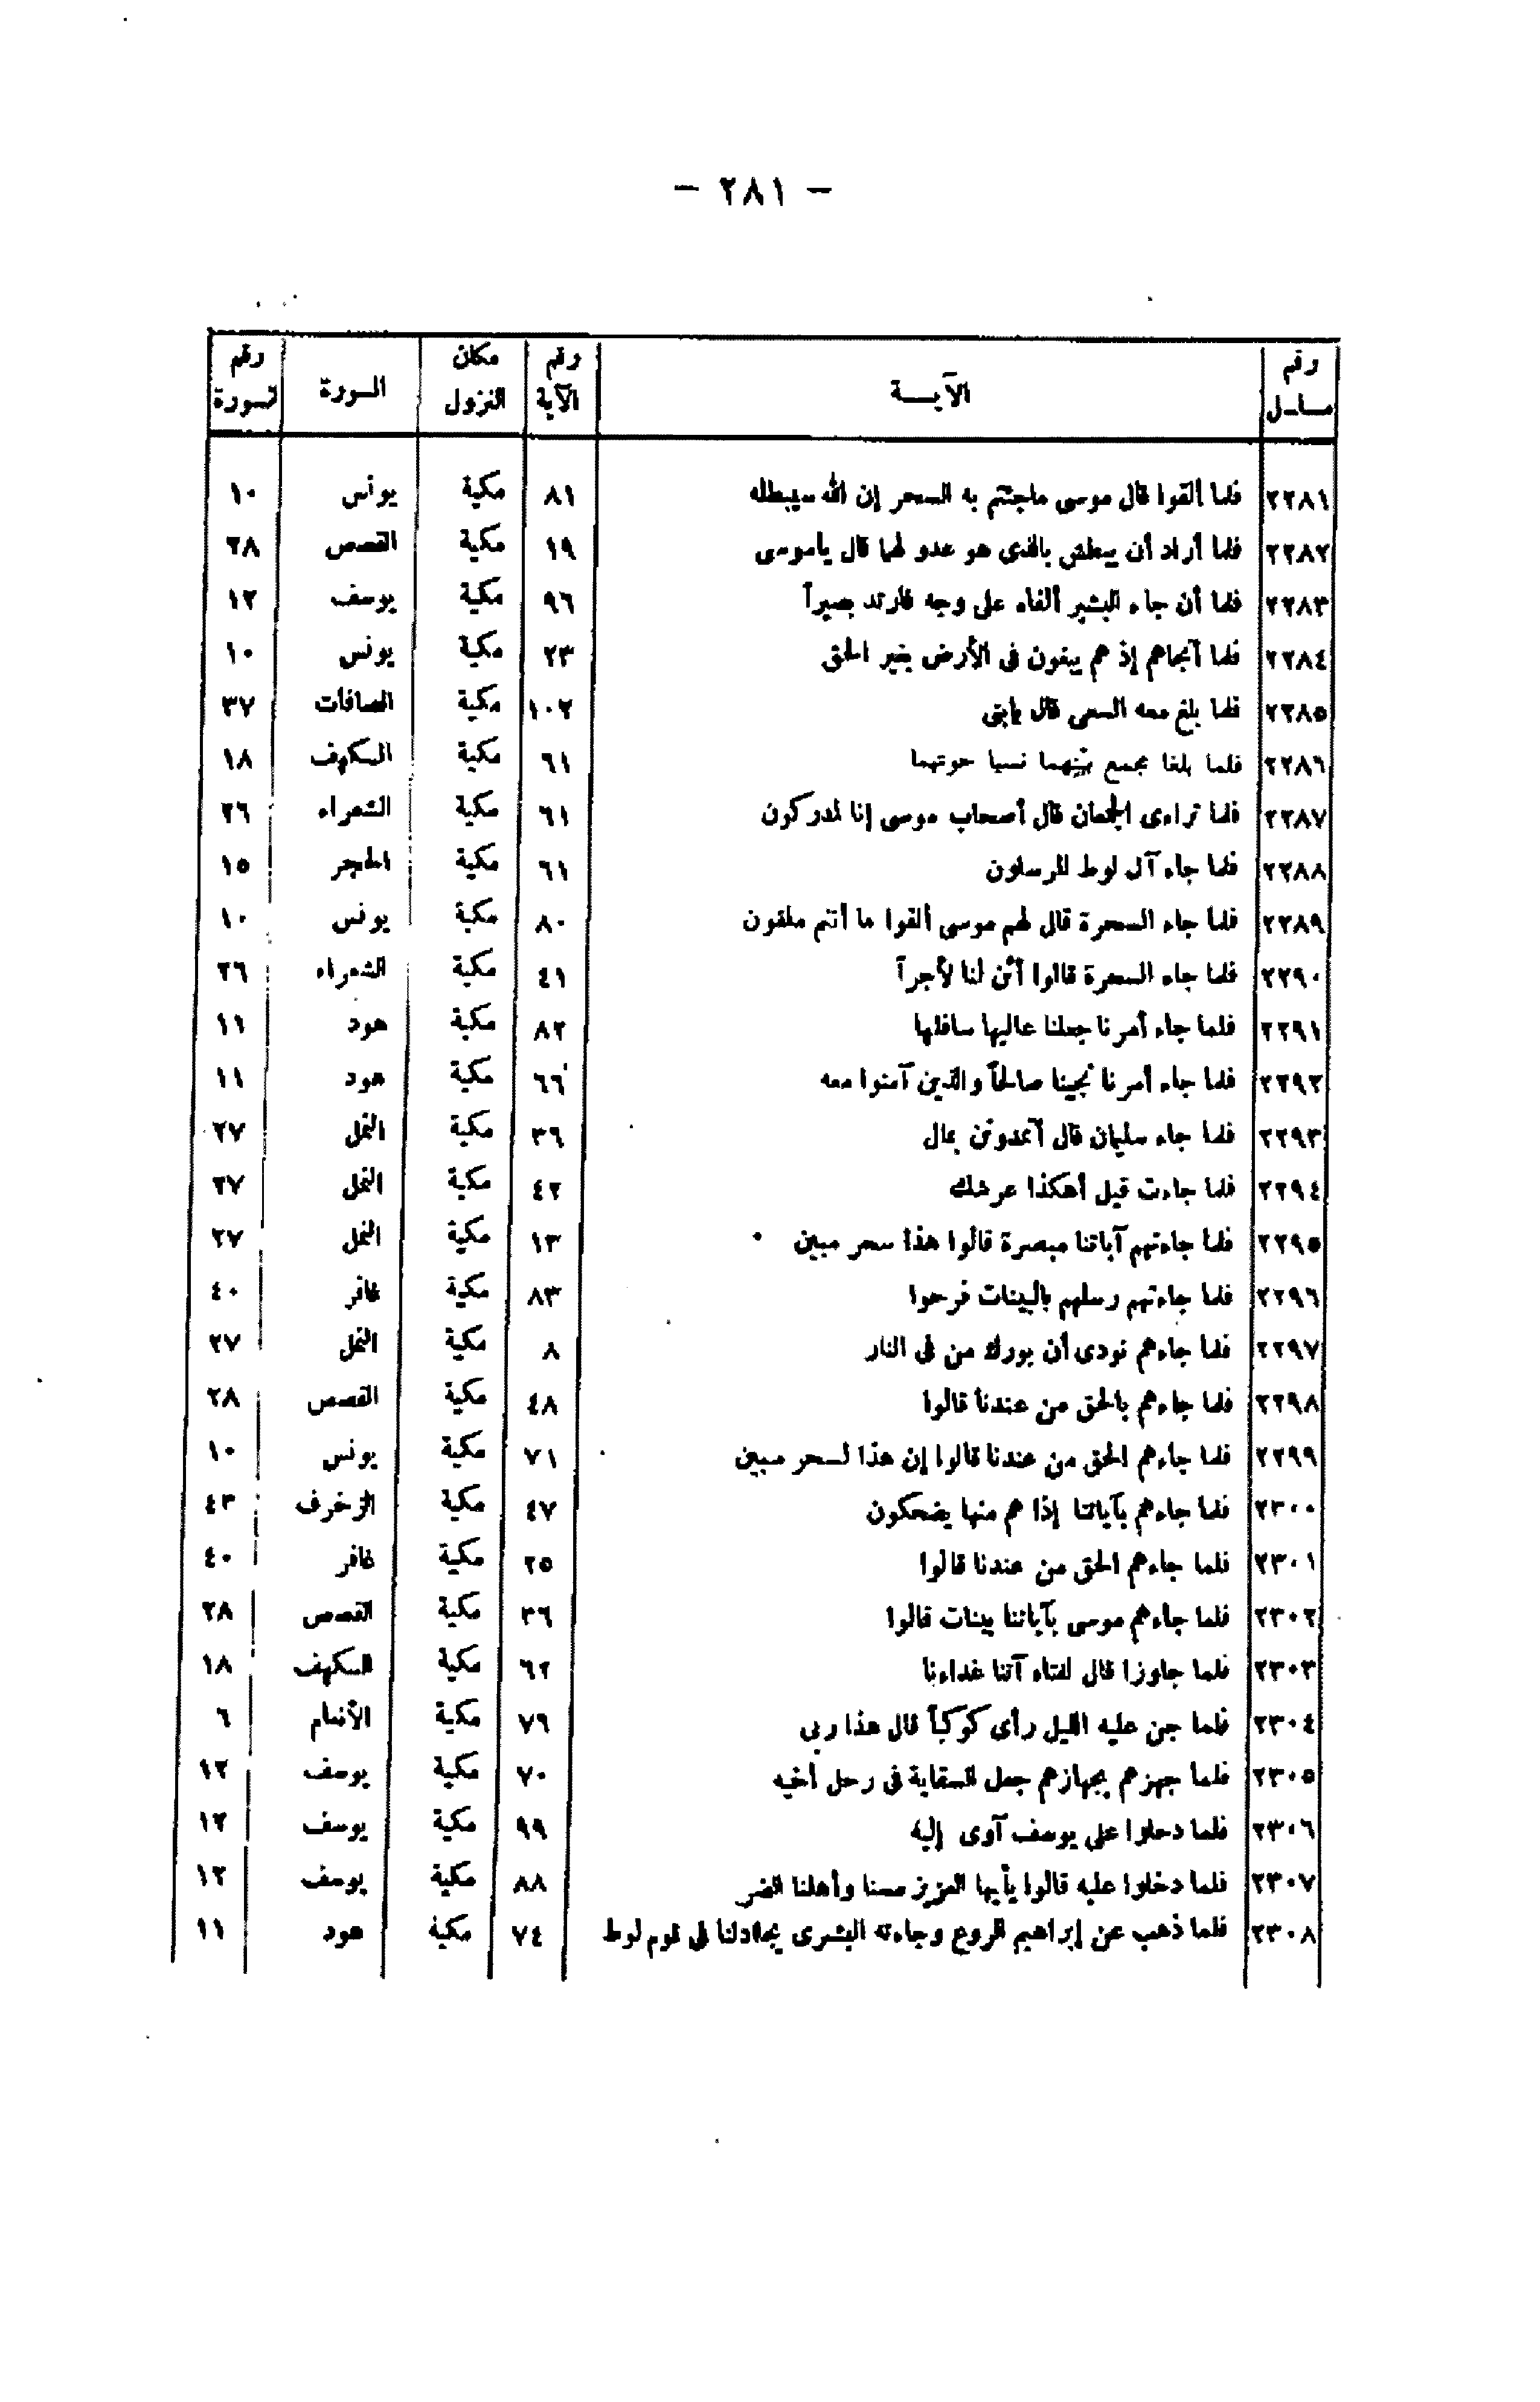 — ٢٨١ —
رقم مسلسل الآيـــة رقم الآية مكان النزول السورة رقم السورة
٢٢٨١ فلما ألقوا قال موسى ماجئتم به السحر إن الله سيبطله ٨١ مكية يونس ١٠
٢٢٨٢ فلما أراد أن يبطش بالذى هو عدو لهما قال ياموسى ١٩ مكية القصص ٢٨
٢٢٨٣ فلما أن جاء البشير ألقاه على وجهه فارتد بصيراً ٩٦ مكية يوسف ١٢
٢٢٨٤ فلما أنجاهم إذ هم يبغون فى الأرض بغير الحق ٢٣ مكية يونس ١٠
٢٢٨٥ فلما بلغ معه السعى قال يابنى ١٠٢ مكية الصافات ٣٧
٢٢٨٦ فلما بلغا مجمع بينهما نسيا حوتهما ٦١ مكية الكهف ١٨
٢٢٨٧ فلما تراءى الجمعان قال أصحاب موسى إنا لمدركون ٦١ مكية الشعراء ٢٦
٢٢٨٨ فلما جاء آل لوط المرسلون ٦١ مكية الحجر ١٥
٢٢٨٩ فلما جاء السحرة قال لهم موسى ألقوا ما أنتم ملقون ٨٠ مكية يونس ١٠
٢٢٩٠ فلما جاء السحرة قالوا أئن لنا لأجراً ٤١ مكية الشعراء ٢٦
٢٢٩١ فلما جاء أمرنا جعلنا عاليها سافلها ٨٢ مكية هود ١١
٢٢٩٢ فلما جاء أمرنا نجينا صالحاً والذين آمنوا معه ٦٦ مكية هود ١١
٢٢٩٣ فلما جاء سليمان قال أتمدونن بمال ٣٦ مكية النمل ٢٧
٢٢٩٤ فلما جاءت قيل أهكذا عرشك ٤٢ مكية النمل ٢٧
٢٢٩٥ فلما جاءتهم آياتنا مبصرة قالوا هذا سحر مبين ١٣ مكية النمل ٢٧
٢٢٩٦ فلما جاءتهم رسلهم بالبينات فرحوا ٨٣ مكية غافر ٤٠
٢٢٩٧ فلما جاءهم نودى أن بورك من فى النار ٨ مكية النمل ٢٧
٢٢٩٨ فلما جاءهم بالحق من عندنا قالوا ٤٨ مكية القصص ٢٨
٢٢٩٩ فلما جاءهم الحق من عندنا قالوا إن هذا لسحر مبين ٧١ مكية يونس ١٠
٢٣٠٠ فلما جاءهم بآياتنا إذا هم منها يضحكون ٤٧ مكية الزخرف ٤٣
٢٣٠١ فلما جاءهم الحق من عندنا قالوا ٢٥ مكية غافر ٤٠
٢٣٠٢ فلما جاءهم موسى بآياتنا بينات قالوا ٣٦ مكية القصص ٢٨
٢٣٠٣ فلما جاوزا قال لفتاه آتنا غداءنا ٦٢ مكية الكهف ١٨
٢٣٠٤ فلما جن عليه الليل رأى كوكباً قال هذا ربى ٧٦ مكية الأنعام ٦
٢٣٠٥ فلما جهزهم بجهازهم جعل السقاية فى رحل أخيه ٧٠ مكية يوسف ١٢
٢٣٠٦ فلما دخلوا على يوسف آوى إليه ٩٩ مكية يوسف ١٢
٢٣٠٧ فلما دخلوا عليه قالوا يأيها العزيز مسنا وأهلنا الضر ٨٨ مكية يوسف ١٢
٢٣٠٨ فلما ذهب عن إبراهيم الروع وجاءته البشرى يجادلنا فى قوم لوط ٧٤ مكية هود ١١